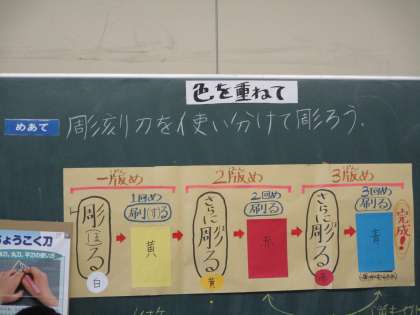 色を重ねて
めあて
彫刻刀を使い分けて彫ろう.
一版め
2版め
3版め
1回め
刷(す)る
2回め
刷る
3回め
刷る
彫(ほ)る
白
黄
さらに彫る
黄
赤
さらに彫る
赤
青
完成!
ちょうこく刀